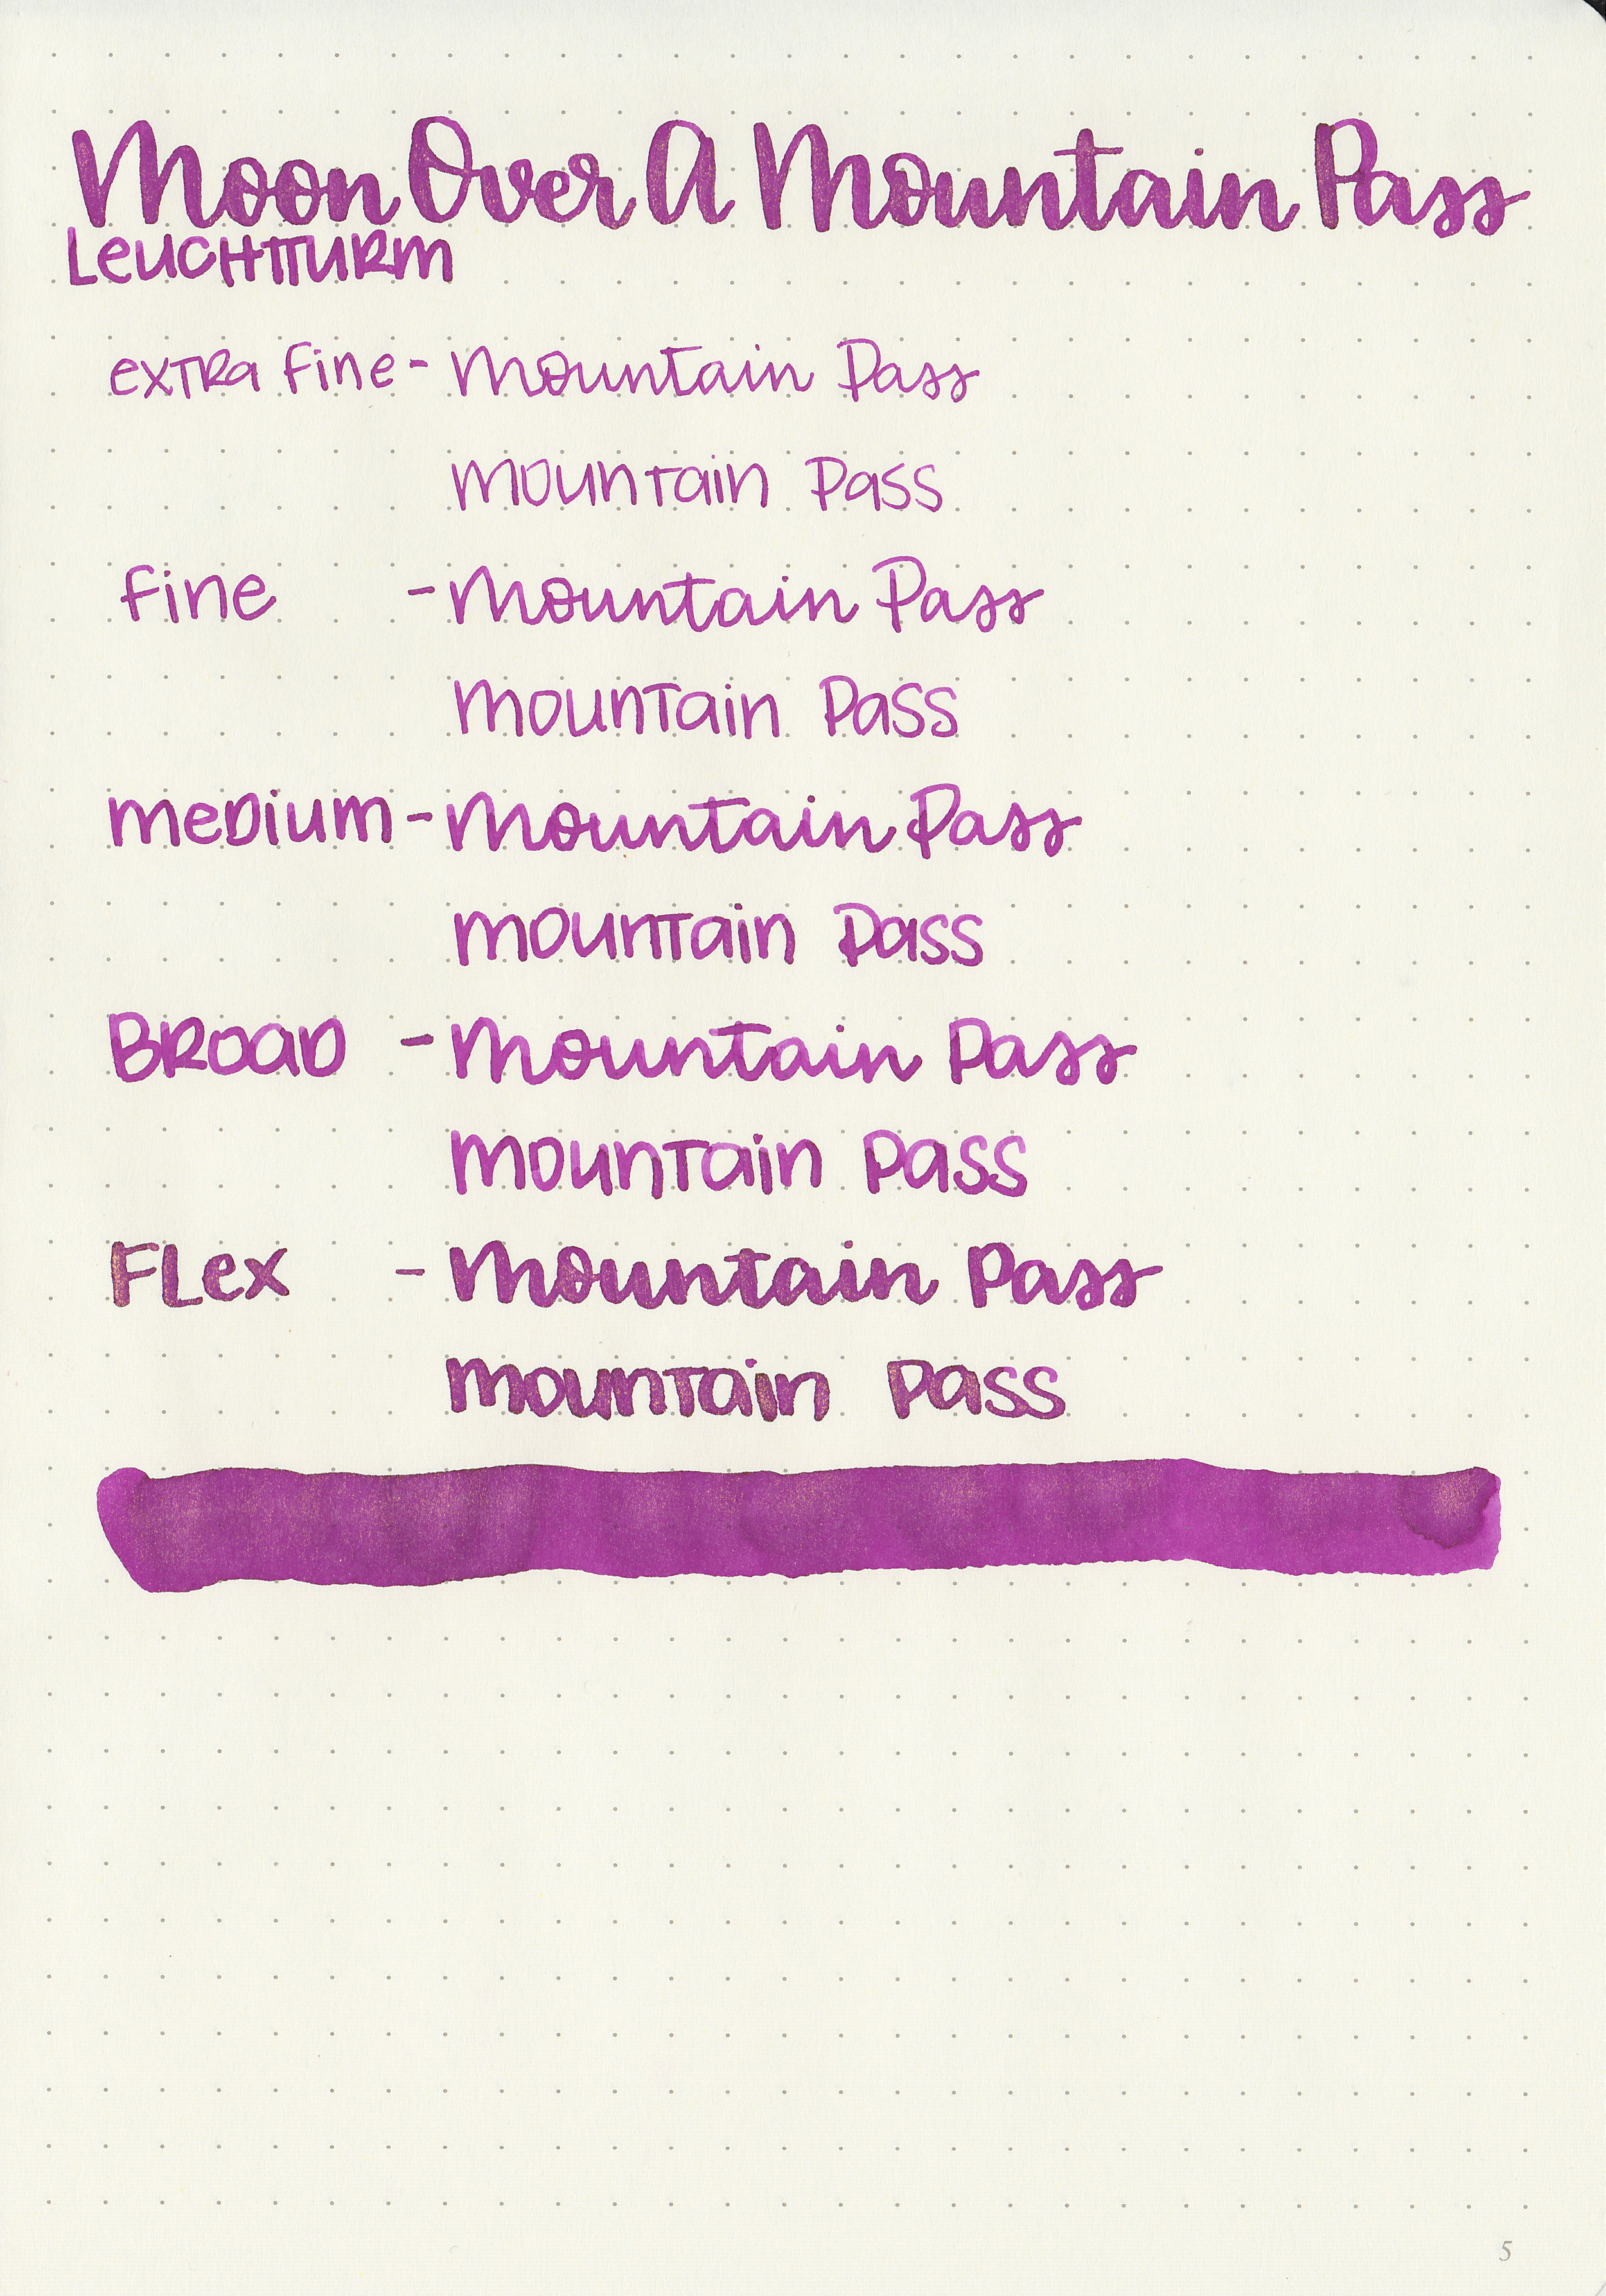 Moon Over A Mountain Pass
Leuchtturm
extra fine - Mountain Pass
mountain Pass
fine - Mountain Pass
mountain Pass
medium - Mountain Pass
mountain Pass
Broad - Mountain Pass
mountain Pass
Flex - Mountain Pass
mountain Pass
5